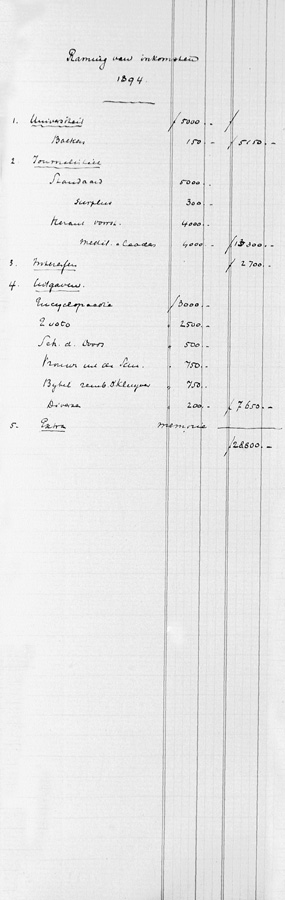 Raming van inkomsten
1894.
1. Universiteit ƒ 5000.- ƒ
Boeken 150.- ƒ 5150.-
2. Journalistiek
Standaard 5000.-
Surplus 300.-
Heraut voorsc. 4000.-
Medit. 4000.- ƒ 13300.-
3. Interesten ƒ 2700.-
4. Uitgaven.
Encyclopaedie ƒ 3000.-
E voto " 2500.-
Sch. d. Voors " 500.-
Vrouwen uit de " 750.-
Bybel " 750.-
Diverse " 200.- ƒ 7650.-
5. Extra memorie
ƒ 28800.-